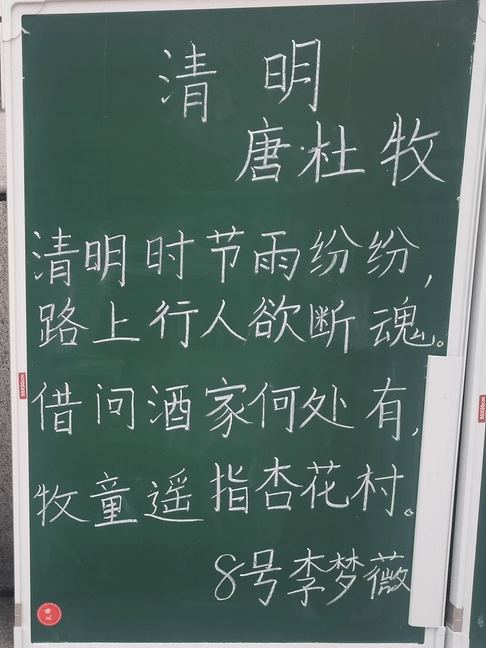 清明
唐杜牧
清明时节雨纷纷,
路上行人欲断魂。
借问酒家何处有,
牧童遥指杏花村。
8号李梦薇